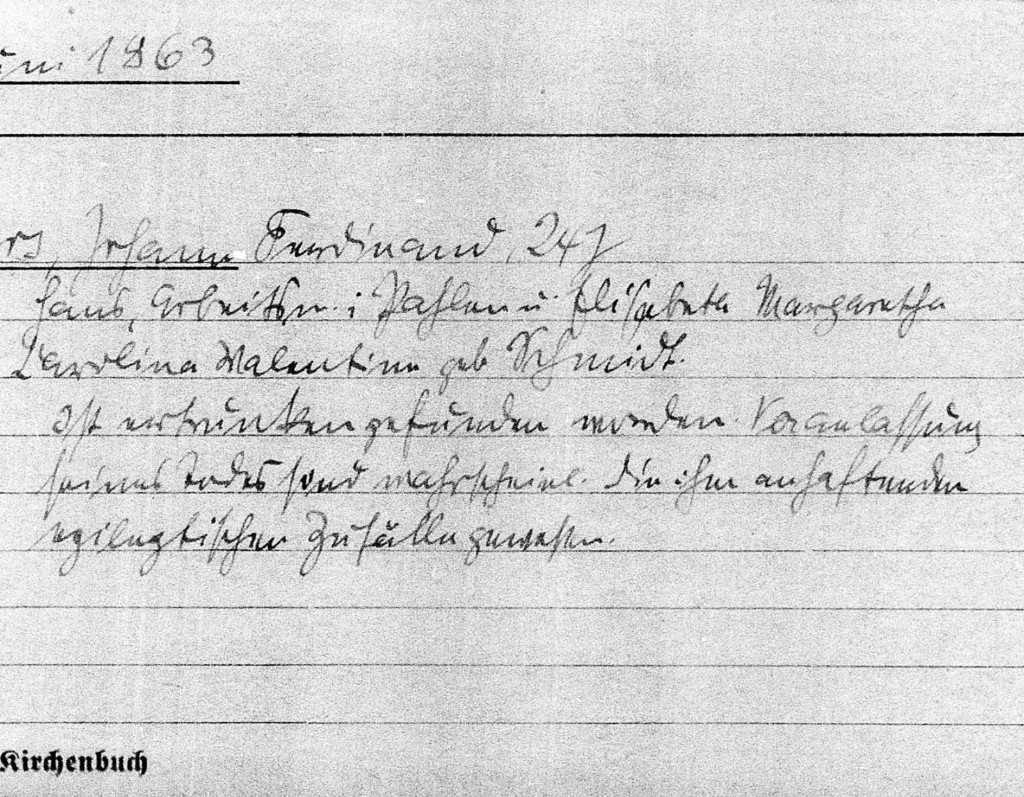 uni 1863
rs, Johann Ferdinand, 24 J
Hans, Arbeitsm. i. Pahlen u. Elisabeth Margaretha
Carolina Valentine geb Schmidt.
Ist ertrunken gefunden worden. Veranlassung
seines Todes sind wahrscheinl. die ihm anhaftenden
epileptischen Zufälle gewesen.
Kirchenbuch